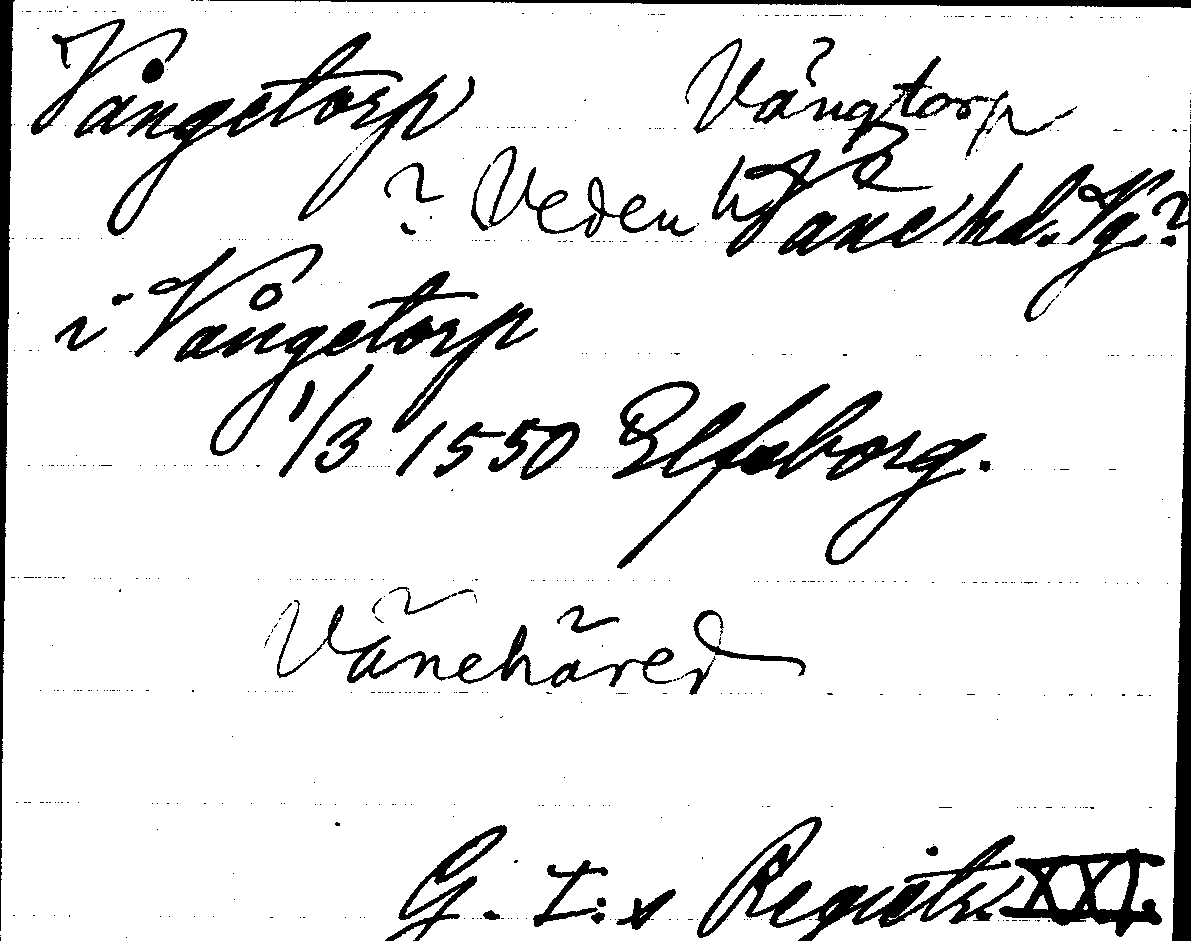 Vångetorp Vängtorp
? Veden h Väne hd. Vg.?
i Vångetorp
1/3 1550 Elfsborg.
Vänehäred
G. I:s Registr. XXI.